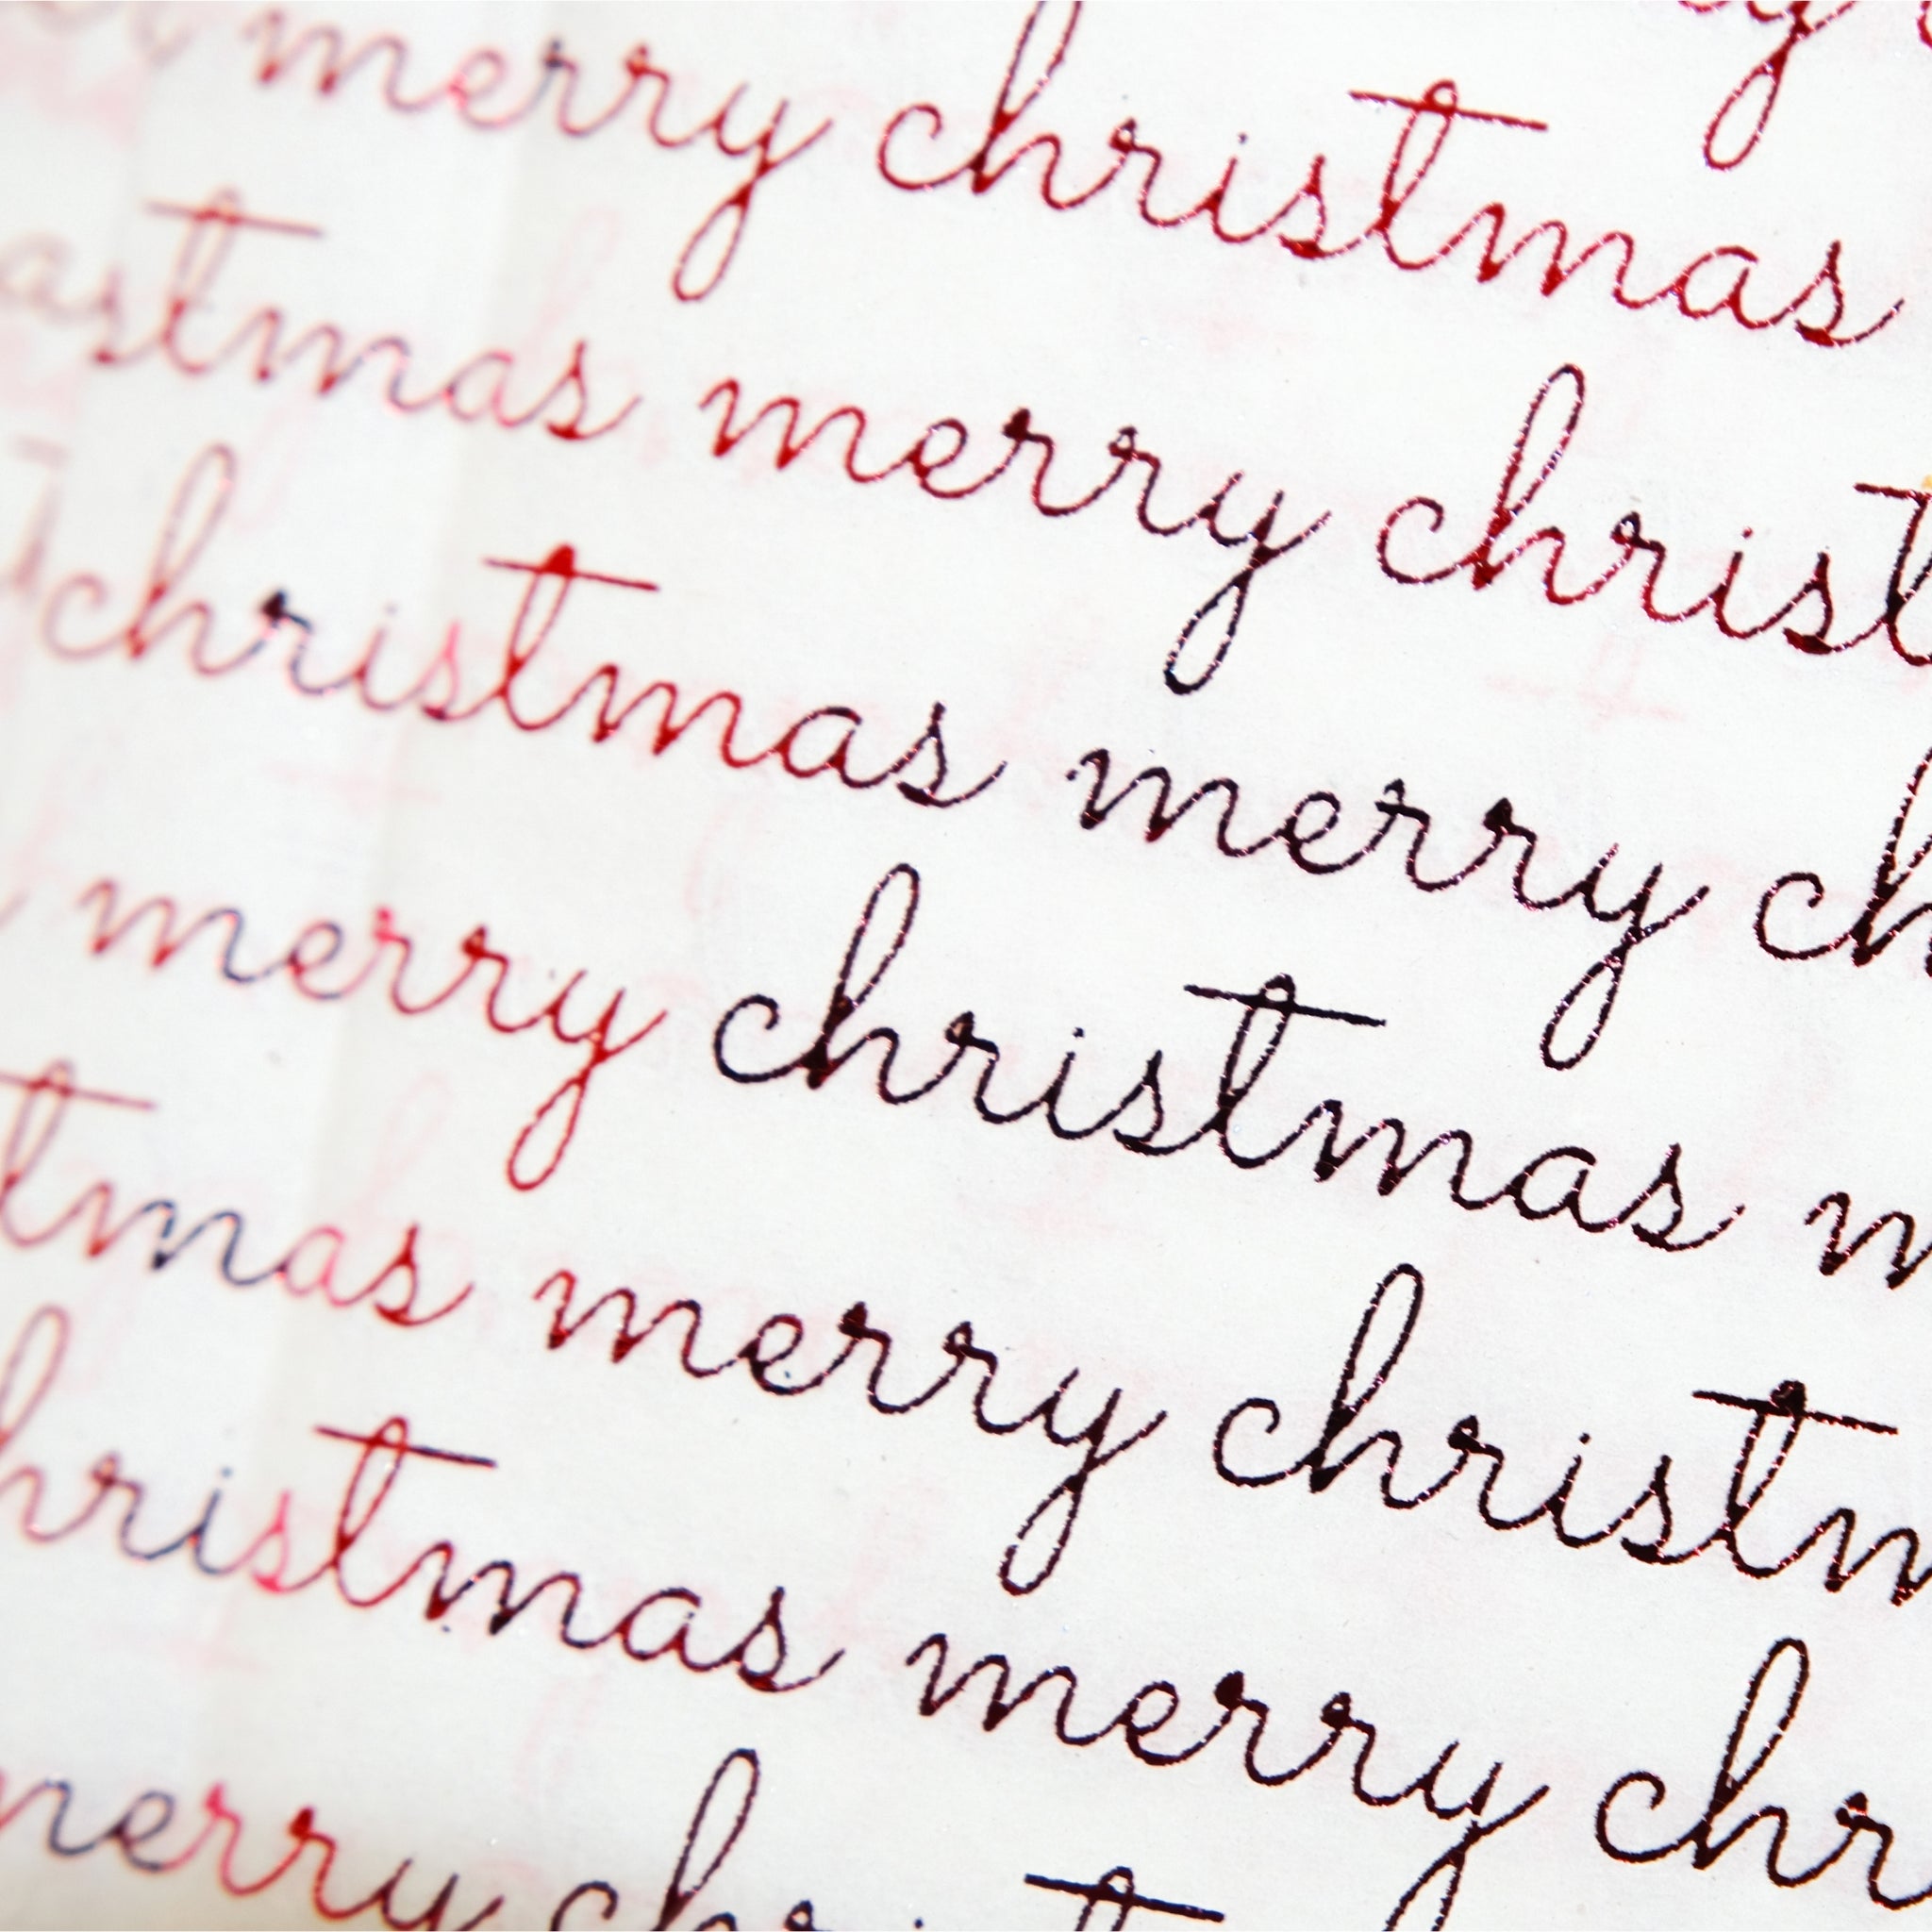 y
merry christmas
istmas merry christ
christmas merry ch
merry christmas m
tmas merry christm
hristmas merry chr
merry christ